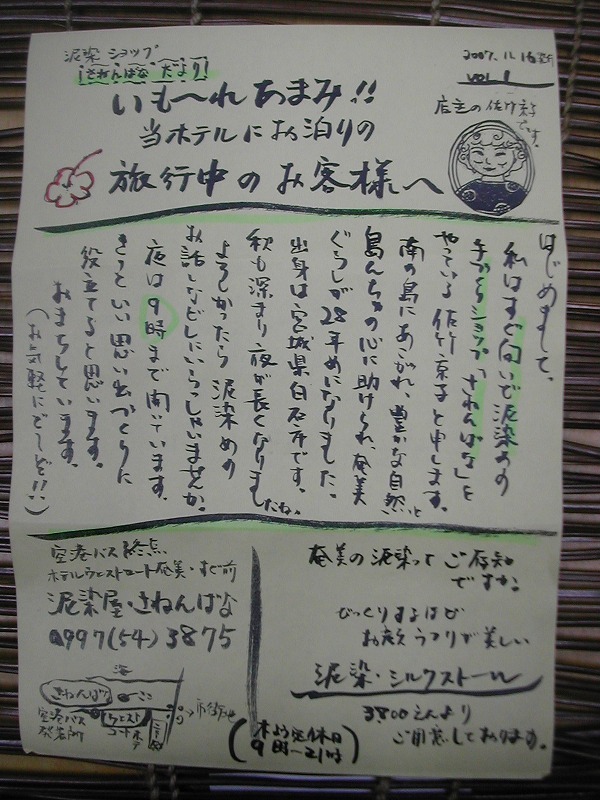 泥染ショップ
さねんばなだより
2007.11.16
vol 1
いも〜れあまみ!!
当ホテルにお泊りの
旅行中のお客様へ
店主の佐竹京子
です。
はじめまして、
私はすぐ向いで泥染めの
手づくりショップ「さねんばな」を
やっている佐竹京子と申します。
南の島にあこがれ、豊かな自然と
島んちゅの心に助けられ、奄美
ぐらしが28年めになりました。
出身は宮城県白石市です。
秋も深まり夜が長くなりましたね。
よろしかったら泥染めの
お話しなどしにいらっしゃいませんか。
夜は9時まで開いています。
きっといい思い出づくりに
役立てると思います。
おまちしています。
(お気軽にどーぞ!!)
奄美の泥染ってご存知
ですか?
びっくりするほど
お顔うつりが美しい
泥染・シルクストール
3800えんより
ご用意しております。
空港バス終点
ホテルウエストコート奄美・すぐ前
泥染屋・さねんばな
0997(54)3875
海
さねんばな
ここ
空港バス
発着所
ウエスト
コート
→市街地
(木よう定休日
9時〜21時)